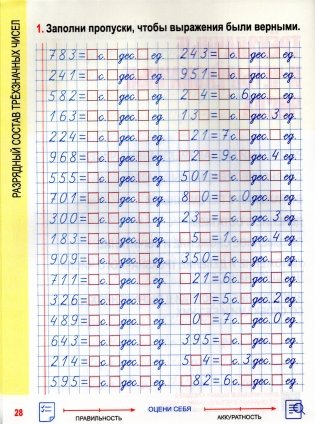 РАЗРЯДНЫЙ СОСТАВ ТРЁХЗНАЧНЫХ ЧИСЕЛ
1. Заполни пропуски, чтобы выражения были верными.
783=□с.□дес.□ед. 243=□с.□дес.□ед.
241=□с.□дес.□ед. 951=□с.□дес.□ед.
582=□с.□дес.□ед. 2□4=□с.6дес.□ед.
163=□с.□дес.□ед. 13□=□с.□дес.3ед.
224=□с.□дес.□ед. □21=7с.□дес.□ед.
968=□с.□дес.□ед. □2□=9с.□дес.4ед.
555=□с.□дес.□ед. 501=□с.□дес.□ед.
701=□с.□дес.□ед. 8□0=□с.0дес.□ед.
300=□с.□дес.□ед. 23□=□с.□дес.3ед.
183=□с.□дес.□ед. □5□=1с.□дес.4ед.
909=□с.□дес.□ед. 350=□с.□дес.□ед.
711=□с.□дес.□ед. □21=6с.□дес.□ед.
326=□с.□дес.□ед. □1□=5с.□дес.2ед.
489=□с.□дес.□ед. □0□=7с.□дес.0ед.
643=□с.□дес.□ед. 395=□с.□дес.□ед.
214=□с.□дес.□ед. 5□4=□с.3дес.□ед.
595=□с.□дес.□ед. □82=6с.□дес.□ед.
28
ОЦЕНИ СЕБЯ
ПРАВИЛЬНОСТЬ АККУРАТНОСТЬ